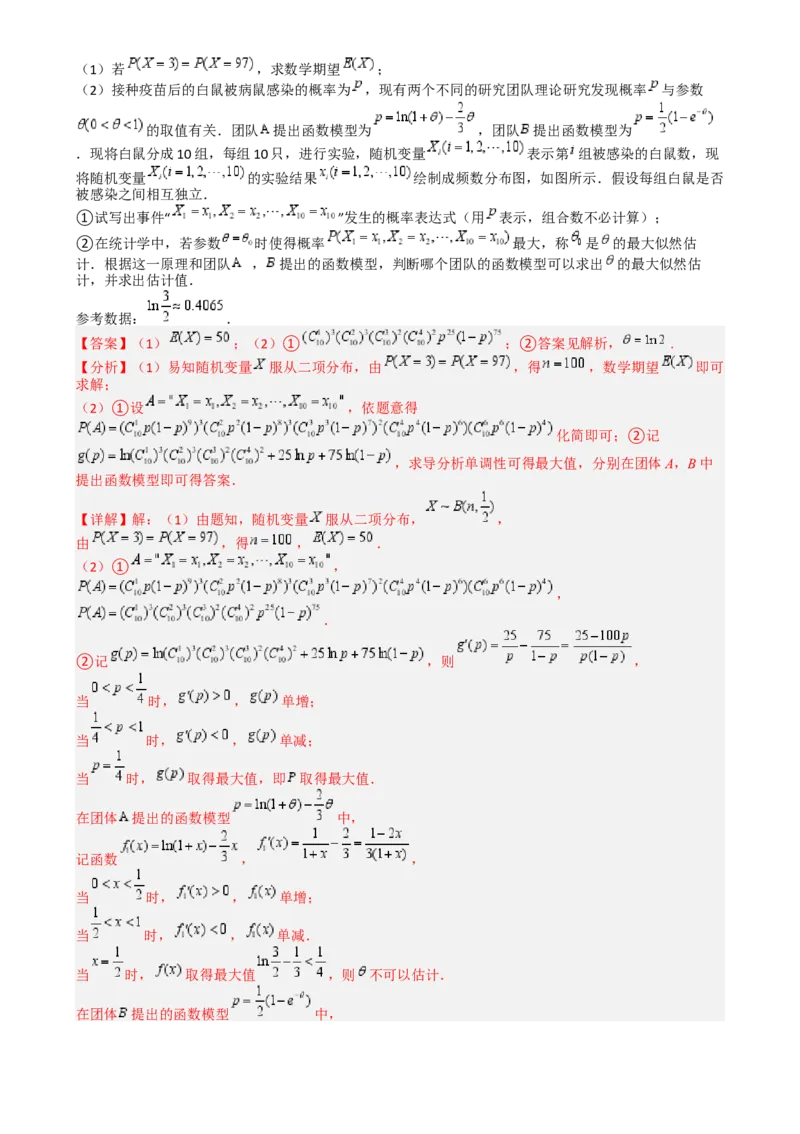 (1) 若 P(X=3)=P(X=97) ,求数学期望 E(X) ;
(2) 接种疫苗后的白鼠被病鼠感染的概率为 p ,现有两个不同的研究团队理论研究发现概率 p 与参数
θ(0<θ<1) 的取值有关.团队 A 提出函数模型为 p=ln(1+θ)-\frac{2}{3}θ ,团队 B 提出函数模型为 p=\frac{1}{2}(1-e^{-θ})
.现将白鼠分成 10 组,每组 10 只,进行实验,随机变量 X_i(i=1,2,⋯,10) 表示第 i 组被感染的白鼠数,现
将随机变量 X_i(i=1,2,⋯,10) 的实验结果 x_i(i=1,2,⋯,10) 绘制成频数分布图,如图所示.假设每组白鼠是否
被感染之间相互独立.
①试写出事件“ X_1=x_1,X_2=x_2,⋯,X_{10}=x_{10} ”发生的概率表达式(用 p 表示,组合数不必计算);
②在统计学中,若参数 θ=θ_0 时使得概率 P(X_1=x_1,X_2=x_2,⋯,X_{10}=x_{10}) 最大,称 θ_0 是 θ 的最大似然估
计.根据这一原理和团队 A , B 提出的函数模型,判断哪个团队的函数模型可以求出 θ 的最大似然估
计,并求出估计值.
参考数据: ln\frac{3}{2}≈0.4065 .
【答案】(1) E(X)=50 ;(2)① (C_{10}^1)^3(C_{10}^2)^3(C_{10}^3)^2(C_{10}^4)^2p^{25}(1-p)^{75} ;②答案见解析, θ=ln2 .
【分析】(1)易知随机变量 X 服从二项分布,由 P(X=3)=P(X=97) ,得 n=100 ,数学期望 E(X) 即可
求解;
(2)①设 A="X_1=x_1,X_2=x_2,⋯,X_{10}=x_{10}" ,依题意得
P(A)=(C_{10}^1p(1-p)^9)^3(C_{10}^2p^2(1-p)^8)^3(C_{10}^3p^3(1-p)^7)^2(C_{10}^4p^4(1-p)^6)(C_{10}^6p^6(1-p)^4) 化简即可;②记
g(p)=ln(C_{10}^1)^3(C_{10}^2)^3(C_{10}^3)^2(C_{10}^4)^2+25lnp+75ln(1-p) ,求导分析单调性可得最大值,分别在团体 A,B 中
提出函数模型即可得答案.
【详解】解:(1)由题知,随机变量 X 服从二项分布, X~B(n,\frac{1}{2}) ,
由 P(X=3)=P(X=97) ,得 n=100 , E(X)=50 .
(2)① A="X_1=x_1,X_2=x_2,⋯,X_{10}=x_{10}" ,
P(A)=(C_{10}^1p(1-p)^9)^3(C_{10}^2p^2(1-p)^8)^3(C_{10}^3p^3(1-p)^7)^2(C_{10}^4p^4(1-p)^6)(C_{10}^6p^6(1-p)^4) ,
P(A)=(C_{10}^1)^3(C_{10}^2)^3(C_{10}^3)^2(C_{10}^4)^2p^{25}(1-p)^{75} .
②记 g(p)=ln(C_{10}^1)^3(C_{10}^2)^3(C_{10}^3)^2(C_{10}^4)^2+25lnp+75ln(1-p) ,则 g'(p)=\frac{25}{p}-\frac{75}{1-p}=\frac{25-100p}{p(1-p)} ,
当 0<p<\frac{1}{4} 时, g'(p)>0 , g(p) 单增;
当 \frac{1}{4}<p<1 时, g'(p)<0 , g(p) 单减;
当 p=\frac{1}{4} 时, g(p) 取得最大值,即 P 取得最大值.
在团体 A 提出的函数模型 p=ln(1+θ)-\frac{2}{3}θ 中,
记函数 f_1(x)=ln(1+x)-\frac{2}{3}x , f_1'(x)=\frac{1}{1+x}-\frac{2}{3}=\frac{1-2x}{3(1+x)} ,
当 0<x<\frac{1}{2} 时, f_1'(x)>0 , f_1(x) 单增;
当 \frac{1}{2}<x<1 时, f_1'(x)<0 , f_1(x) 单减.
当 x=\frac{1}{2} 时, f(x) 取得最大值 ln\frac{3}{2}-\frac{1}{3}<\frac{1}{4} ,则 θ 不可以估计.
在团体 B 提出的函数模型 p=\frac{1}{2}(1-e^{-θ}) 中,